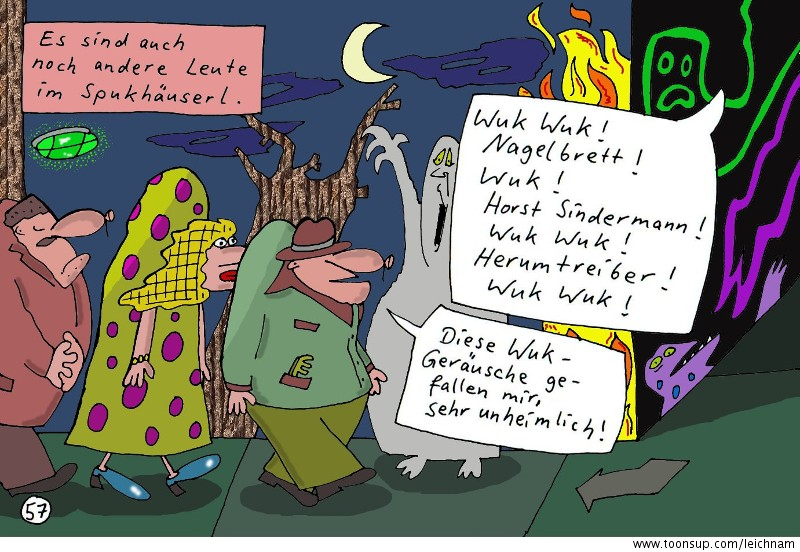 Es sind auch
noch andere Leute
im Spukhäuserl.
Wuk Wuk!
Nagelbrett!
Wuk!
Horst Sindermann!
Wuk Wuk!
Herumtreiber!
Wuk Wuk!
Diese Wuk-
Geräusche ge-
fallen mir,
sehr unheimlich!
57
www.toonsup.com/leichnam